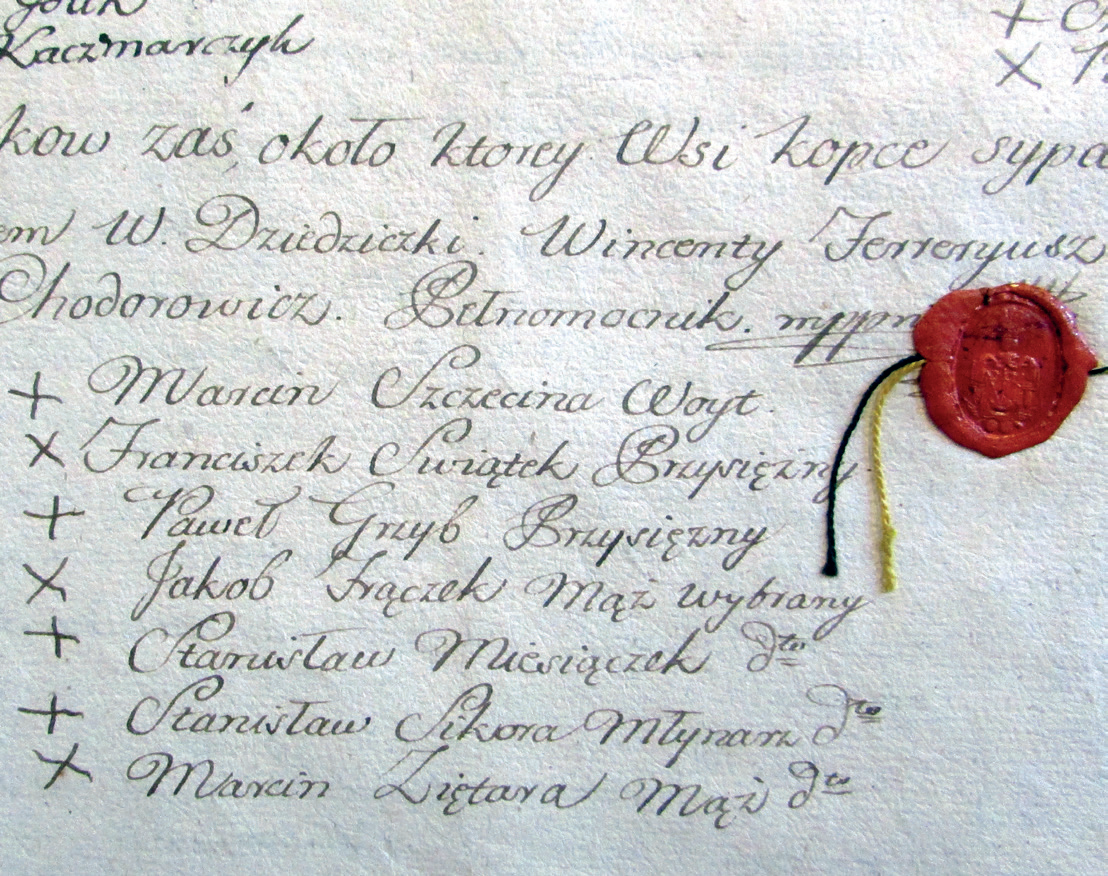 Kaczmarczyk
kow zaś, około ktorey Wsi kopce sypa
em W. Dziedziczki. Wincenty Ferreryusz
Chodorowicz. Pełnomocnik. mppr
+ Marcin Szczecina Woyt.
× Franciszek Swiątek Przysięzny.
+ Paweł Grzyb Przysięzny
× Jakob Frączek Mąż wybrany
+ Stanisław Miesiączek dto
+ Stanisław Sikora Młynarz dto
× Marcin Ziętara Mąż dto